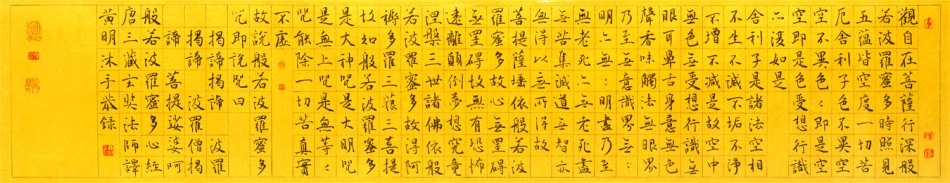 觀自在菩薩行深般
若波羅蜜多時照見
五蘊皆空度一切苦
厄舍利子色不異空
空不異色々即是空
空即是色受想行識
亦復如是
舍利子是諸法空相
不生不滅不垢不淨
不增不減是故空中
無色無受想行識無
眼耳鼻舌身意無色
聲香味觸法無眼界
乃至無意識界無々
明亦無々明盡乃至
無老死亦無老死盡
無苦集滅道無智亦
無得以無所得故
菩提薩埵依般若波
羅蜜多故心無罣礙
無罣礙故無有恐怖
遠離顛倒夢想究竟
涅槃三世諸佛依般
若波羅蜜多故得阿
耨多羅三藐三菩提
故知般若波羅蜜多
是大神呪是大明呪
是無上呪是無等々
呪能除一切苦真實
不虛
故說般若波羅蜜多
呪即說呪曰
揭諦揭諦 波羅
揭諦 波羅僧揭
諦 菩提娑婆訶
般若波羅蜜多心經
唐三藏玄奘法師譯
黃明沐手敬錄